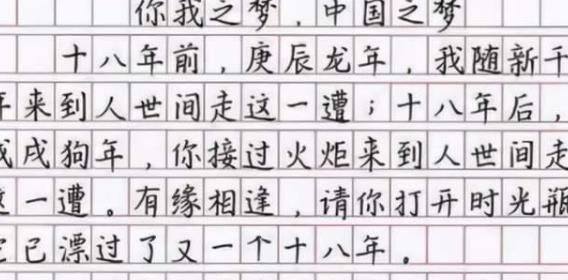 你我之梦，中国之梦
十八年前，庚辰龙年，我随新千
年来到人世间走这一遭；十八年后，
戊戌狗年，你接过火炬来到人世间走
这一遭。有缘相逢，请你打开时光瓶
它已漂过了又一个十八年。